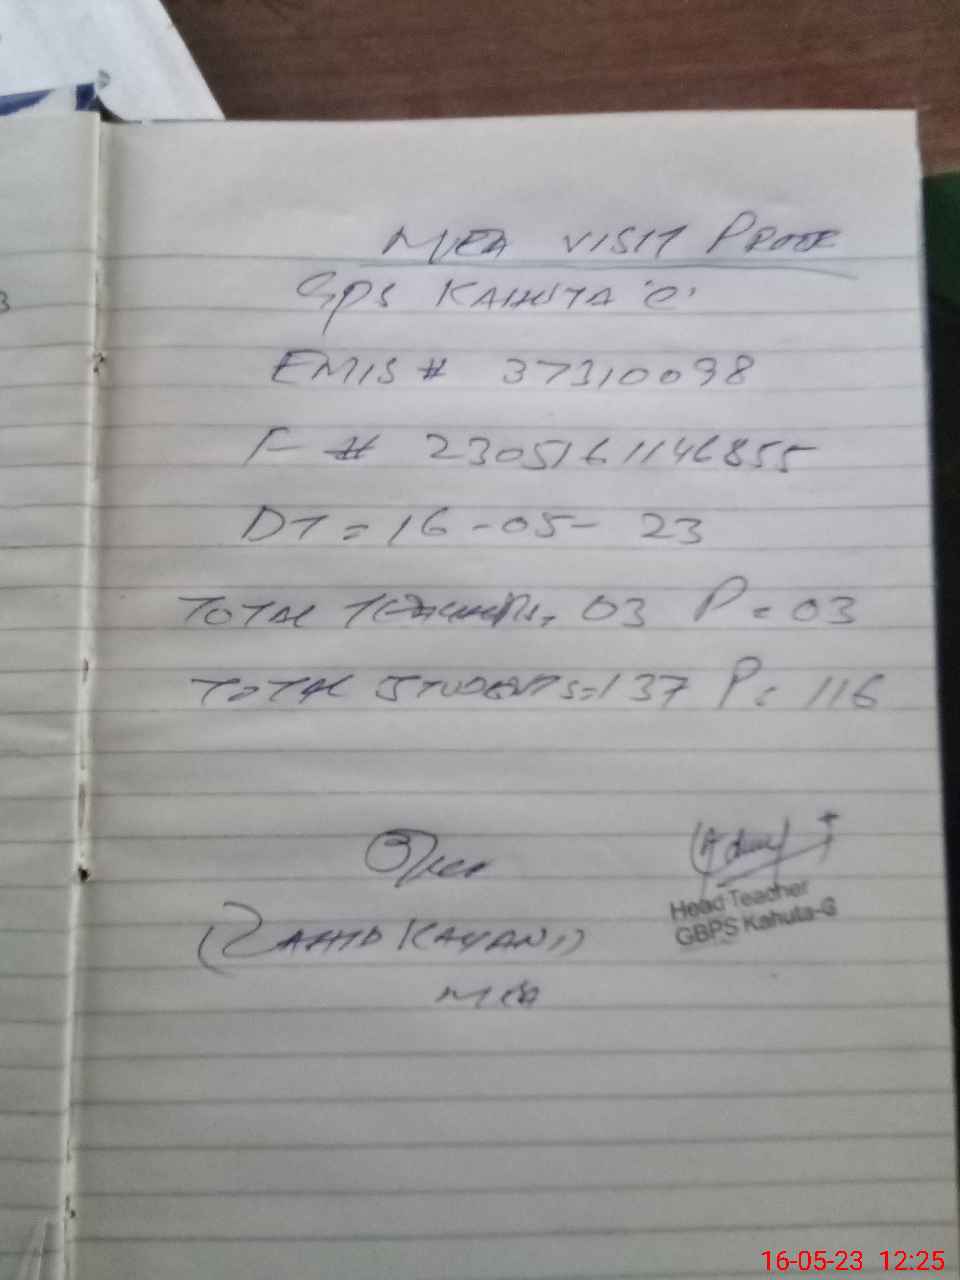 MEA VISIT PROOF
GPS KAHUTA 'C'
EMIS # 37310098
F # 2305161146855
DT = 16-05-23
TOTAL TEACHERS = 03 P = 03
TOTAL STUDENTS = 137 P = 116
(ZAHID KAYANI)
MEA
Head Teacher
GBPS Kahuta-C
16-05-23 12:25